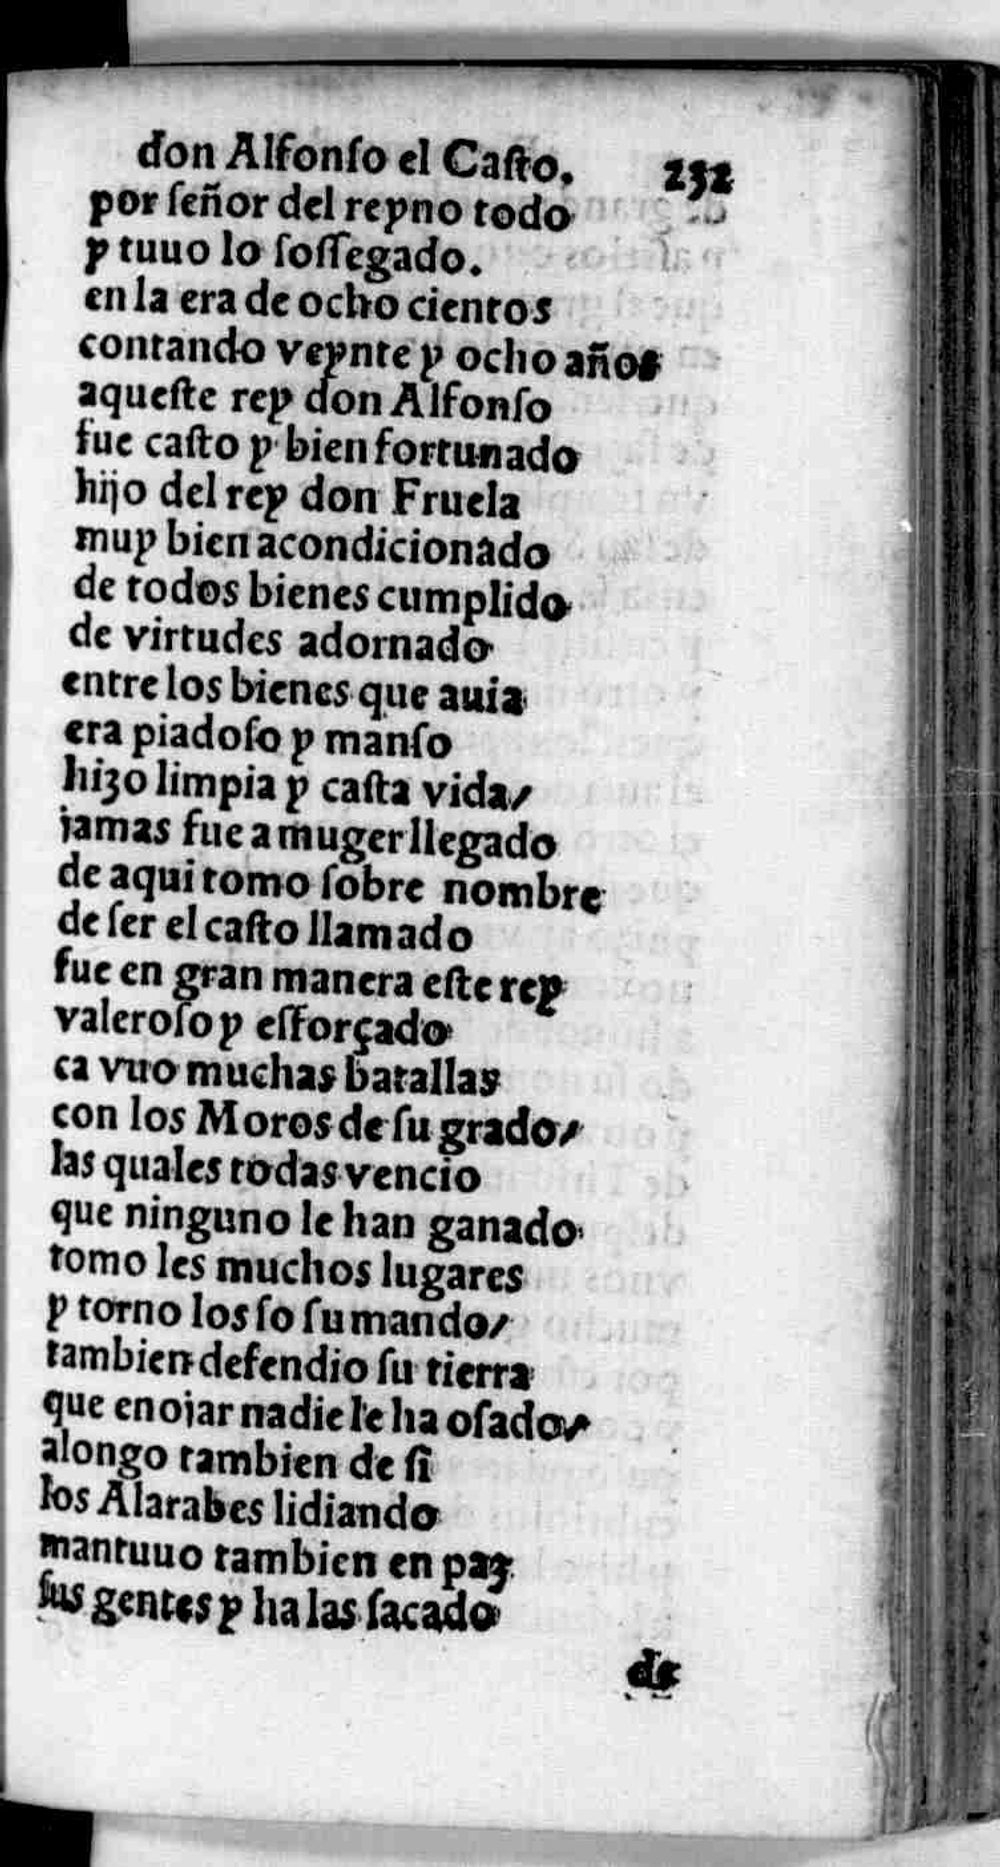 don Alfonſo el Caſto. 232
por ſeñor del reyno todo
y tuuo lo ſoſſegado.
en la era de ocho cientos
contando veynte y ocho años
aqueſte rey don Alfonſo
fue caſto y bien fortunado
hijo del rey don Fruela
muy bien acondicionado
de todos bienes cumplido
de virtudes adornado
entre los bienes que auia
era piadoſo y manſo
hizo limpia y caſta vida/
jamas fue a muger llegado
de aqui tomo ſobre nombre
de ſer el caſto llamado
fue en gran manera eſte rey
valeroſo y eſforçado
ca vuo muchas batallas
con los Moros de ſu grado/
las quales todas vencio
que ninguno le han ganado
tomo les muchos lugares
y torno los ſo ſu mando/
tambien defendio ſu tierra
que enojar nadie le ha oſado/
alongo tambien de ſi
los Alarabes lidiando
mantuuo tambien en paz
ſus gentes y ha las ſacado
de